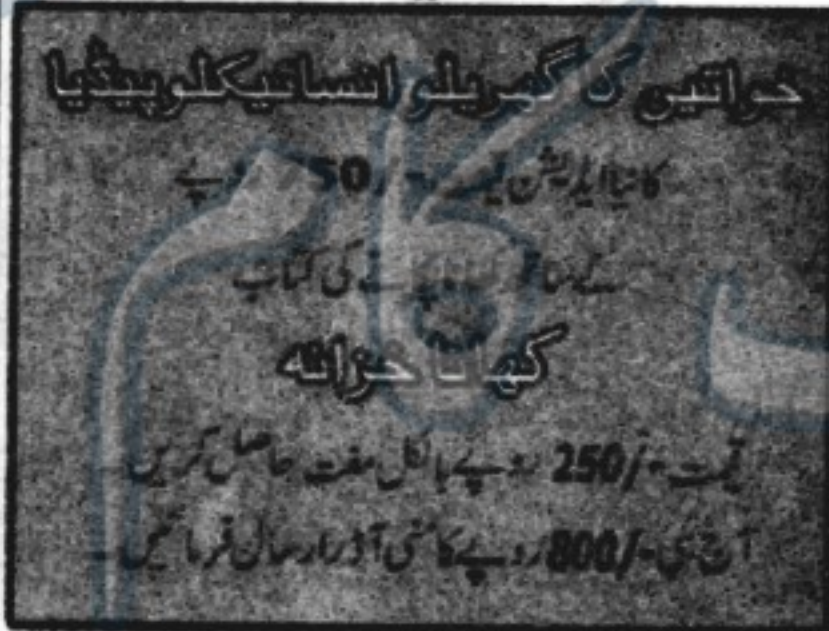 خواتین کا گھریلو انسائیکلوپیڈیا
کا نیا ایڈیشن قیمت روپے
کے ساتھ کھانا پکانے کی کتاب
کھانا خزانہ
قیمت -/250 روپے بالکل مفت حاصل کریں۔
آج ہی -/800 روپے کا منی آڈر ارسال فرمائیں۔